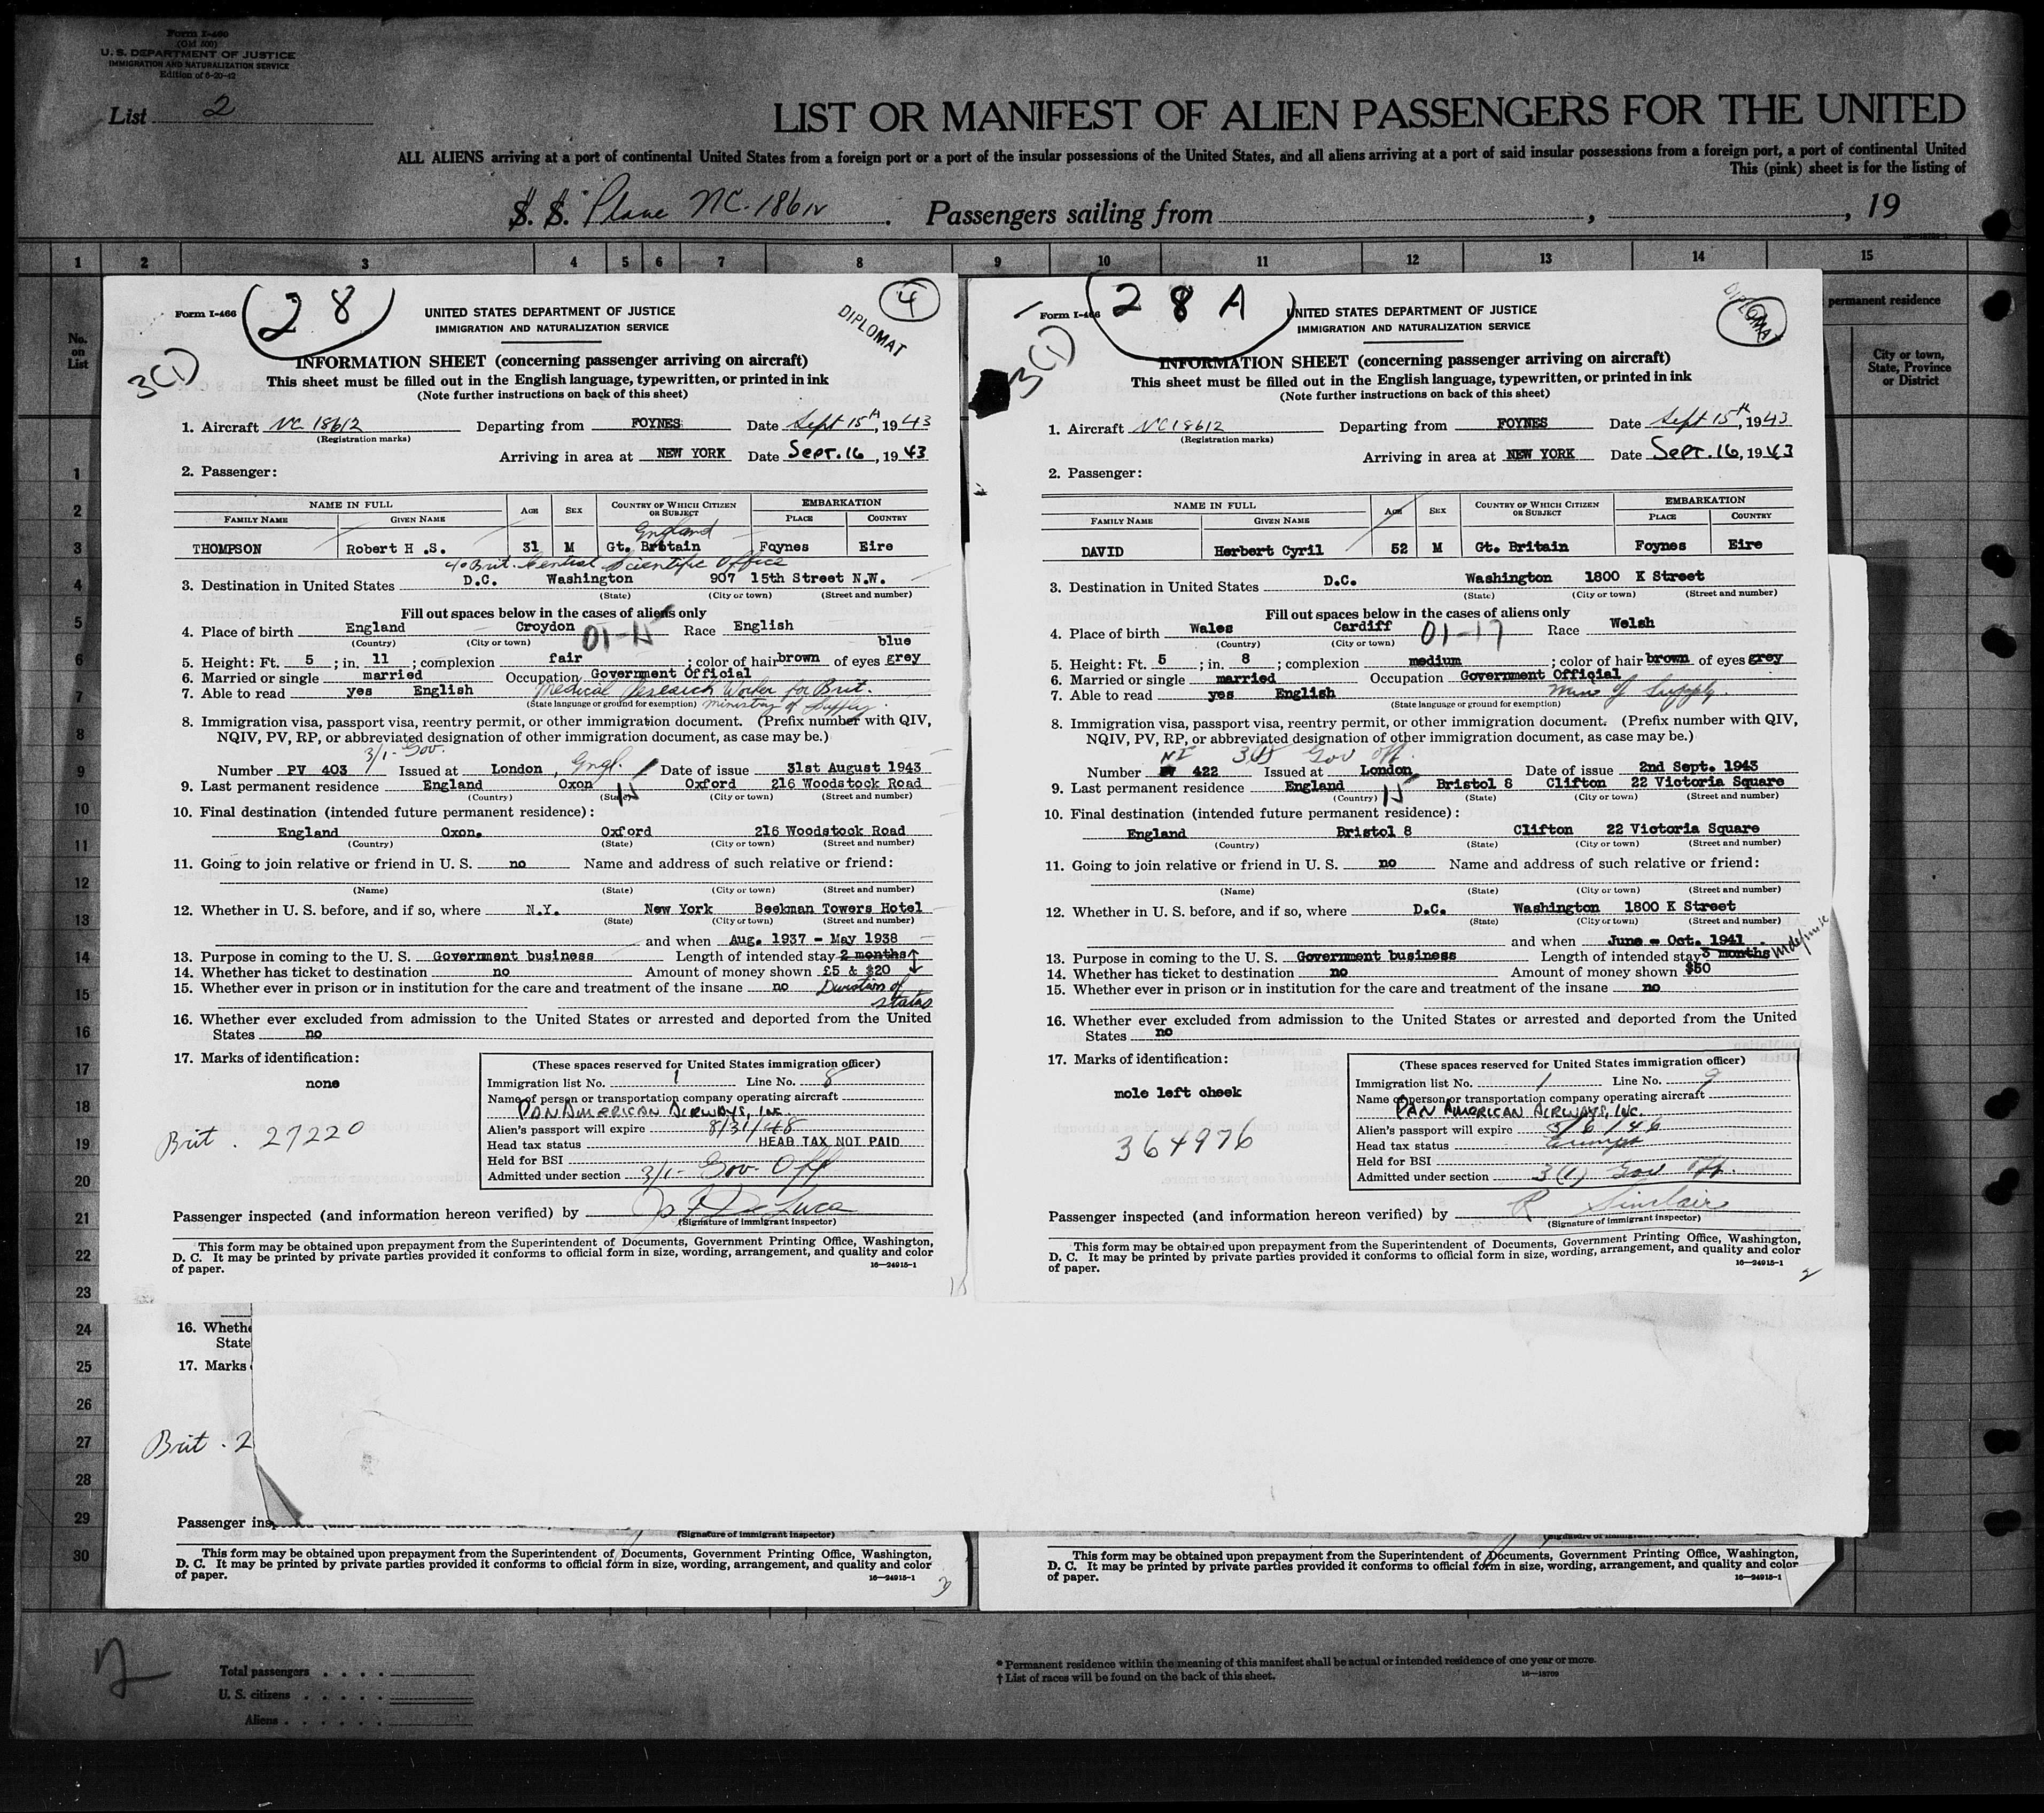 Form I-490
(Old 500)
U. S. DEPARTMENT OF JUSTICE
IMMIGRATION AND NATURALIZATION SERVICE
Edition of 6-20-42
List 2
LIST OR MANIFEST OF ALIEN PASSENGERS FOR THE UNITED
ALL ALIENS arriving at a port of continental United States from a foreign port or a port of the insular possessions of the United States, and all aliens arriving at a port of said insular possessions from a foreign port, a port of continental United
This (pink) sheet is for the listing of
S. S. Plane NC-18612. Passengers sailing from , , 19
1 2 3 4 5 6 7 8 9 10 11 12 13 14 15
No. on List
permanent residence
City or town, State, Province or District
1
2
3
4
5
6
7
8
9
10
11
12
13
14
15
16
17
18
19
20
21
22
23
24
25
26
27
28
29
30
Form I-466
(28)
UNITED STATES DEPARTMENT OF JUSTICE
IMMIGRATION AND NATURALIZATION SERVICE
4
DIPLOMAT
3(1)
INFORMATION SHEET (concerning passenger arriving on aircraft)
This sheet must be filled out in the English language, typewritten, or printed in ink
(Note further instructions on back of this sheet)
1. Aircraft NC 18612 Departing from FOYNES Date Sept 15th, 1943
(Registration marks)
Arriving in area at NEW YORK Date Sept. 16, 1943
2. Passenger:
NAME IN FULL AGE SEX COUNTRY OF WHICH CITIZEN OR SUBJECT EMBARKATION
FAMILY NAME GIVEN NAME PLACE COUNTRY
England
THOMPSON Robert H .S. 31 M Gt. Britain Foynes Eire
c/o Brit. Central Scientific Office
3. Destination in United States D.C. Washington 907 15th Street N.W.
(State) (City or town) (Street and number)
Fill out spaces below in the cases of aliens only
4. Place of birth England Croydon Race English
(Country) (City or town)
blue
5. Height: Ft. 5 ; in. 11 ; complexion fair ; color of hair brown of eyes grey
6. Married or single married Occupation Government Official
7. Able to read yes English Medical Research Worker for Brit.
(State language or ground for exemption) Ministry of Supply.
8. Immigration visa, passport visa, reentry permit, or other immigration document. (Prefix number with QIV,
NQIV, PV, RP, or abbreviated designation of other immigration document, as case may be.)
3/1- Gov.
Number PV 403 Issued at London, Engl. Date of issue 31st August 1943
9. Last permanent residence England Oxon Oxford 216 Woodstock Road
(Country) (State) (City or town) (Street and number)
10. Final destination (intended future permanent residence):
England Oxon. Oxford 216 Woodstock Road
(Country) (State) (City or town) (Street and number)
11. Going to join relative or friend in U. S. no Name and address of such relative or friend:
(Name) (State) (City or town) (Street and number)
12. Whether in U. S. before, and if so, where N.Y. New York Beekman Towers Hotel
(State) (City or town) (Street and number)
and when Aug. 1937 - May 1938
13. Purpose in coming to the U. S. Government business Length of intended stay 2 months
14. Whether has ticket to destination no Amount of money shown £5 & $20
15. Whether ever in prison or in institution for the care and treatment of the insane no Duration of
status
16. Whether ever excluded from admission to the United States or arrested and deported from the United
States no
17. Marks of identification:
none
Brit. 27220
(These spaces reserved for United States immigration officer)
Immigration list No. 1 Line No. 8
Name of person or transportation company operating aircraft
PAN AMERICAN AIRWAYS, INC.
Alien's passport will expire 8/31/48
Head tax status HEAD TAX NOT PAID
Held for BSI
Admitted under section 3/1- Gov. Off
Passenger inspected (and information hereon verified) by De Luca
(Signature of immigrant inspector)
This form may be obtained upon prepayment from the Superintendent of Documents, Government Printing Office, Washington,
D. C. It may be printed by private parties provided it conforms to official form in size, wording, arrangement, and quality and color
of paper.
16—24915-1
Form I-466
(28A)
UNITED STATES DEPARTMENT OF JUSTICE
IMMIGRATION AND NATURALIZATION SERVICE
DIPLOMAT
3(1)
INFORMATION SHEET (concerning passenger arriving on aircraft)
This sheet must be filled out in the English language, typewritten, or printed in ink
(Note further instructions on back of this sheet)
1. Aircraft NC18612 Departing from FOYNES Date Sept 15th, 1943
(Registration marks)
Arriving in area at NEW YORK Date Sept. 16, 1943
2. Passenger:
NAME IN FULL AGE SEX COUNTRY OF WHICH CITIZEN OR SUBJECT EMBARKATION
FAMILY NAME GIVEN NAME PLACE COUNTRY
DAVID Herbert Cyril 52 M Gt. Britain Foynes Eire
3. Destination in United States D.C. Washington 1800 K Street
(State) (City or town) (Street and number)
Fill out spaces below in the cases of aliens only
4. Place of birth Wales Cardiff 01-17 Race Welsh
(Country) (City or town)
5. Height: Ft. 5 ; in. 8 ; complexion medium ; color of hair brown of eyes grey
6. Married or single married Occupation Government Official
7. Able to read yes English Min. of Supply.
(State language or ground for exemption)
8. Immigration visa, passport visa, reentry permit, or other immigration document. (Prefix number with QIV,
NQIV, PV, RP, or abbreviated designation of other immigration document, as case may be.)
NI 3(1) Gov off.
Number 422 Issued at London Date of issue 2nd Sept. 1943
9. Last permanent residence England Bristol 8 Clifton 22 Victoria Square
(Country) (State) (City or town) (Street and number)
10. Final destination (intended future permanent residence):
England Bristol 8 Clifton 22 Victoria Square
(Country) (State) (City or town) (Street and number)
11. Going to join relative or friend in U. S. no Name and address of such relative or friend:
(Name) (State) (City or town) (Street and number)
12. Whether in U. S. before, and if so, where D.C. Washington 1800 K Street
(State) (City or town) (Street and number)
and when June - Oct. 1941
13. Purpose in coming to the U. S. Government business Length of intended stay 3 months Indefinite
14. Whether has ticket to destination no Amount of money shown $50
15. Whether ever in prison or in institution for the care and treatment of the insane no
16. Whether ever excluded from admission to the United States or arrested and deported from the United
States no
17. Marks of identification:
mole left cheek
364976
(These spaces reserved for United States immigration officer)
Immigration list No. 1 Line No. 9
Name of person or transportation company operating aircraft
PAN AMERICAN AIRWAYS, INC.
Alien's passport will expire 5/6/46
Head tax status Exempt
Held for BSI
Admitted under section 3(1) Gov Off.
Passenger inspected (and information hereon verified) by R Sinclair
(Signature of immigrant inspector)
This form may be obtained upon prepayment from the Superintendent of Documents, Government Printing Office, Washington,
D. C. It may be printed by private parties provided it conforms to official form in size, wording, arrangement, and quality and color
of paper.
16—24915-1
2
16. Wheth
State
17. Marks
Brit. 2
Passenger ins
(Signature of immigrant inspector)
This form may be obtained upon prepayment from the Superintendent of Documents, Government Printing Office, Washington,
D. C. It may be printed by private parties provided it conforms to official form in size, wording, arrangement, and quality and color
of paper.
16—24915-1
This form may be obtained upon prepayment from the Superintendent of Documents, Government Printing Office, Washington,
D. C. It may be printed by private parties provided it conforms to official form in size, wording, arrangement, and quality and color
of paper.
16—24915-1
Total passengers
U. S. citizens
Aliens
* Permanent residence within the meaning of this manifest shall be actual or intended residence of one year or more.
† List of races will be found on the back of this sheet.
16—18709